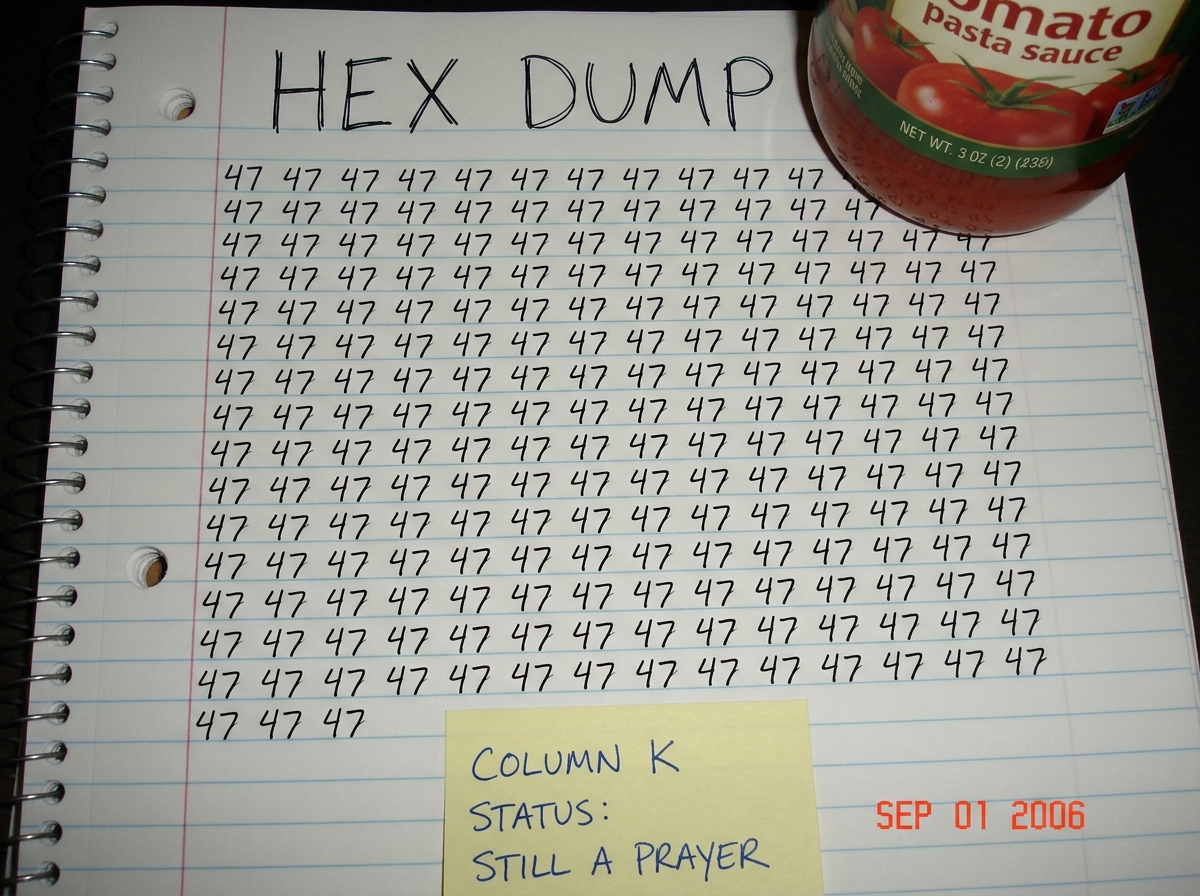 HEX DUMP
omato
pasta sauce
NET WT. 3 OZ (2)
47 47 47 47 47 47 47 47 47 47 47
47 47 47 47 47 47 47 47 47 47 47 47
47 47 47 47 47 47 47 47 47 47 47 47 47 47
47 47 47 47 47 47 47 47 47 47 47 47 47 47
47 47 47 47 47 47 47 47 47 47 47 47 47 47
47 47 47 47 47 47 47 47 47 47 47 47 47 47
47 47 47 47 47 47 47 47 47 47 47 47 47 47
47 47 47 47 47 47 47 47 47 47 47 47 47 47
47 47 47 47 47 47 47 47 47 47 47 47 47 47
47 47 47 47 47 47 47 47 47 47 47 47 47 47
47 47 47 47 47 47 47 47 47 47 47 47 47 47
47 47 47 47 47 47 47 47 47 47 47 47 47 47
47 47 47 47 47 47 47 47 47 47 47 47 47 47
47 47 47 47 47 47 47 47 47 47 47 47 47 47
47 47 47 47 47 47 47 47 47 47 47 47 47 47
47 47 47
COLUMN K
STATUS:
STILL A PRAYER
SEP 01 2006